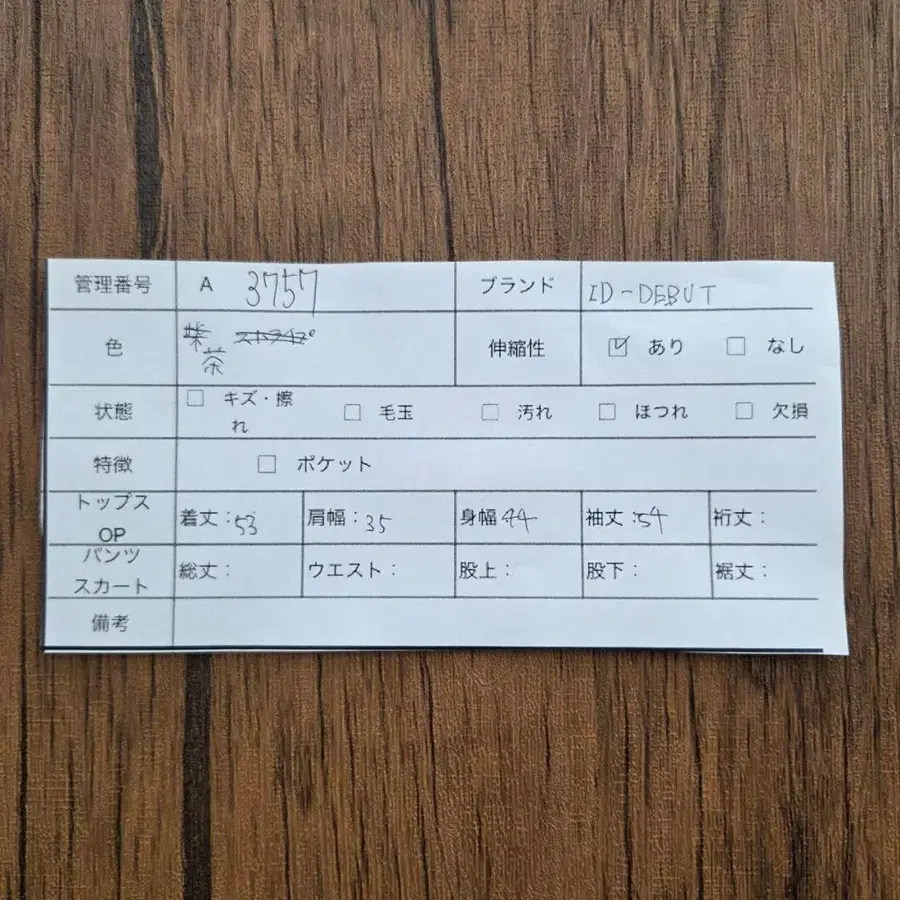 管理番号 A 3757 ブランド ID-DEBUT
色 茶 伸縮性 ☑ あり ☐ なし
状態 ☐ キズ・擦れ ☐ 毛玉 ☐ 汚れ ☐ ほつれ ☐ 欠損
特徴 ☐ ポケット
トップス OP 着丈:53 肩幅:35 身幅 44 袖丈:54 裄丈:
パンツ スカート 総丈: ウエスト: 股上: 股下: 裾丈:
備考